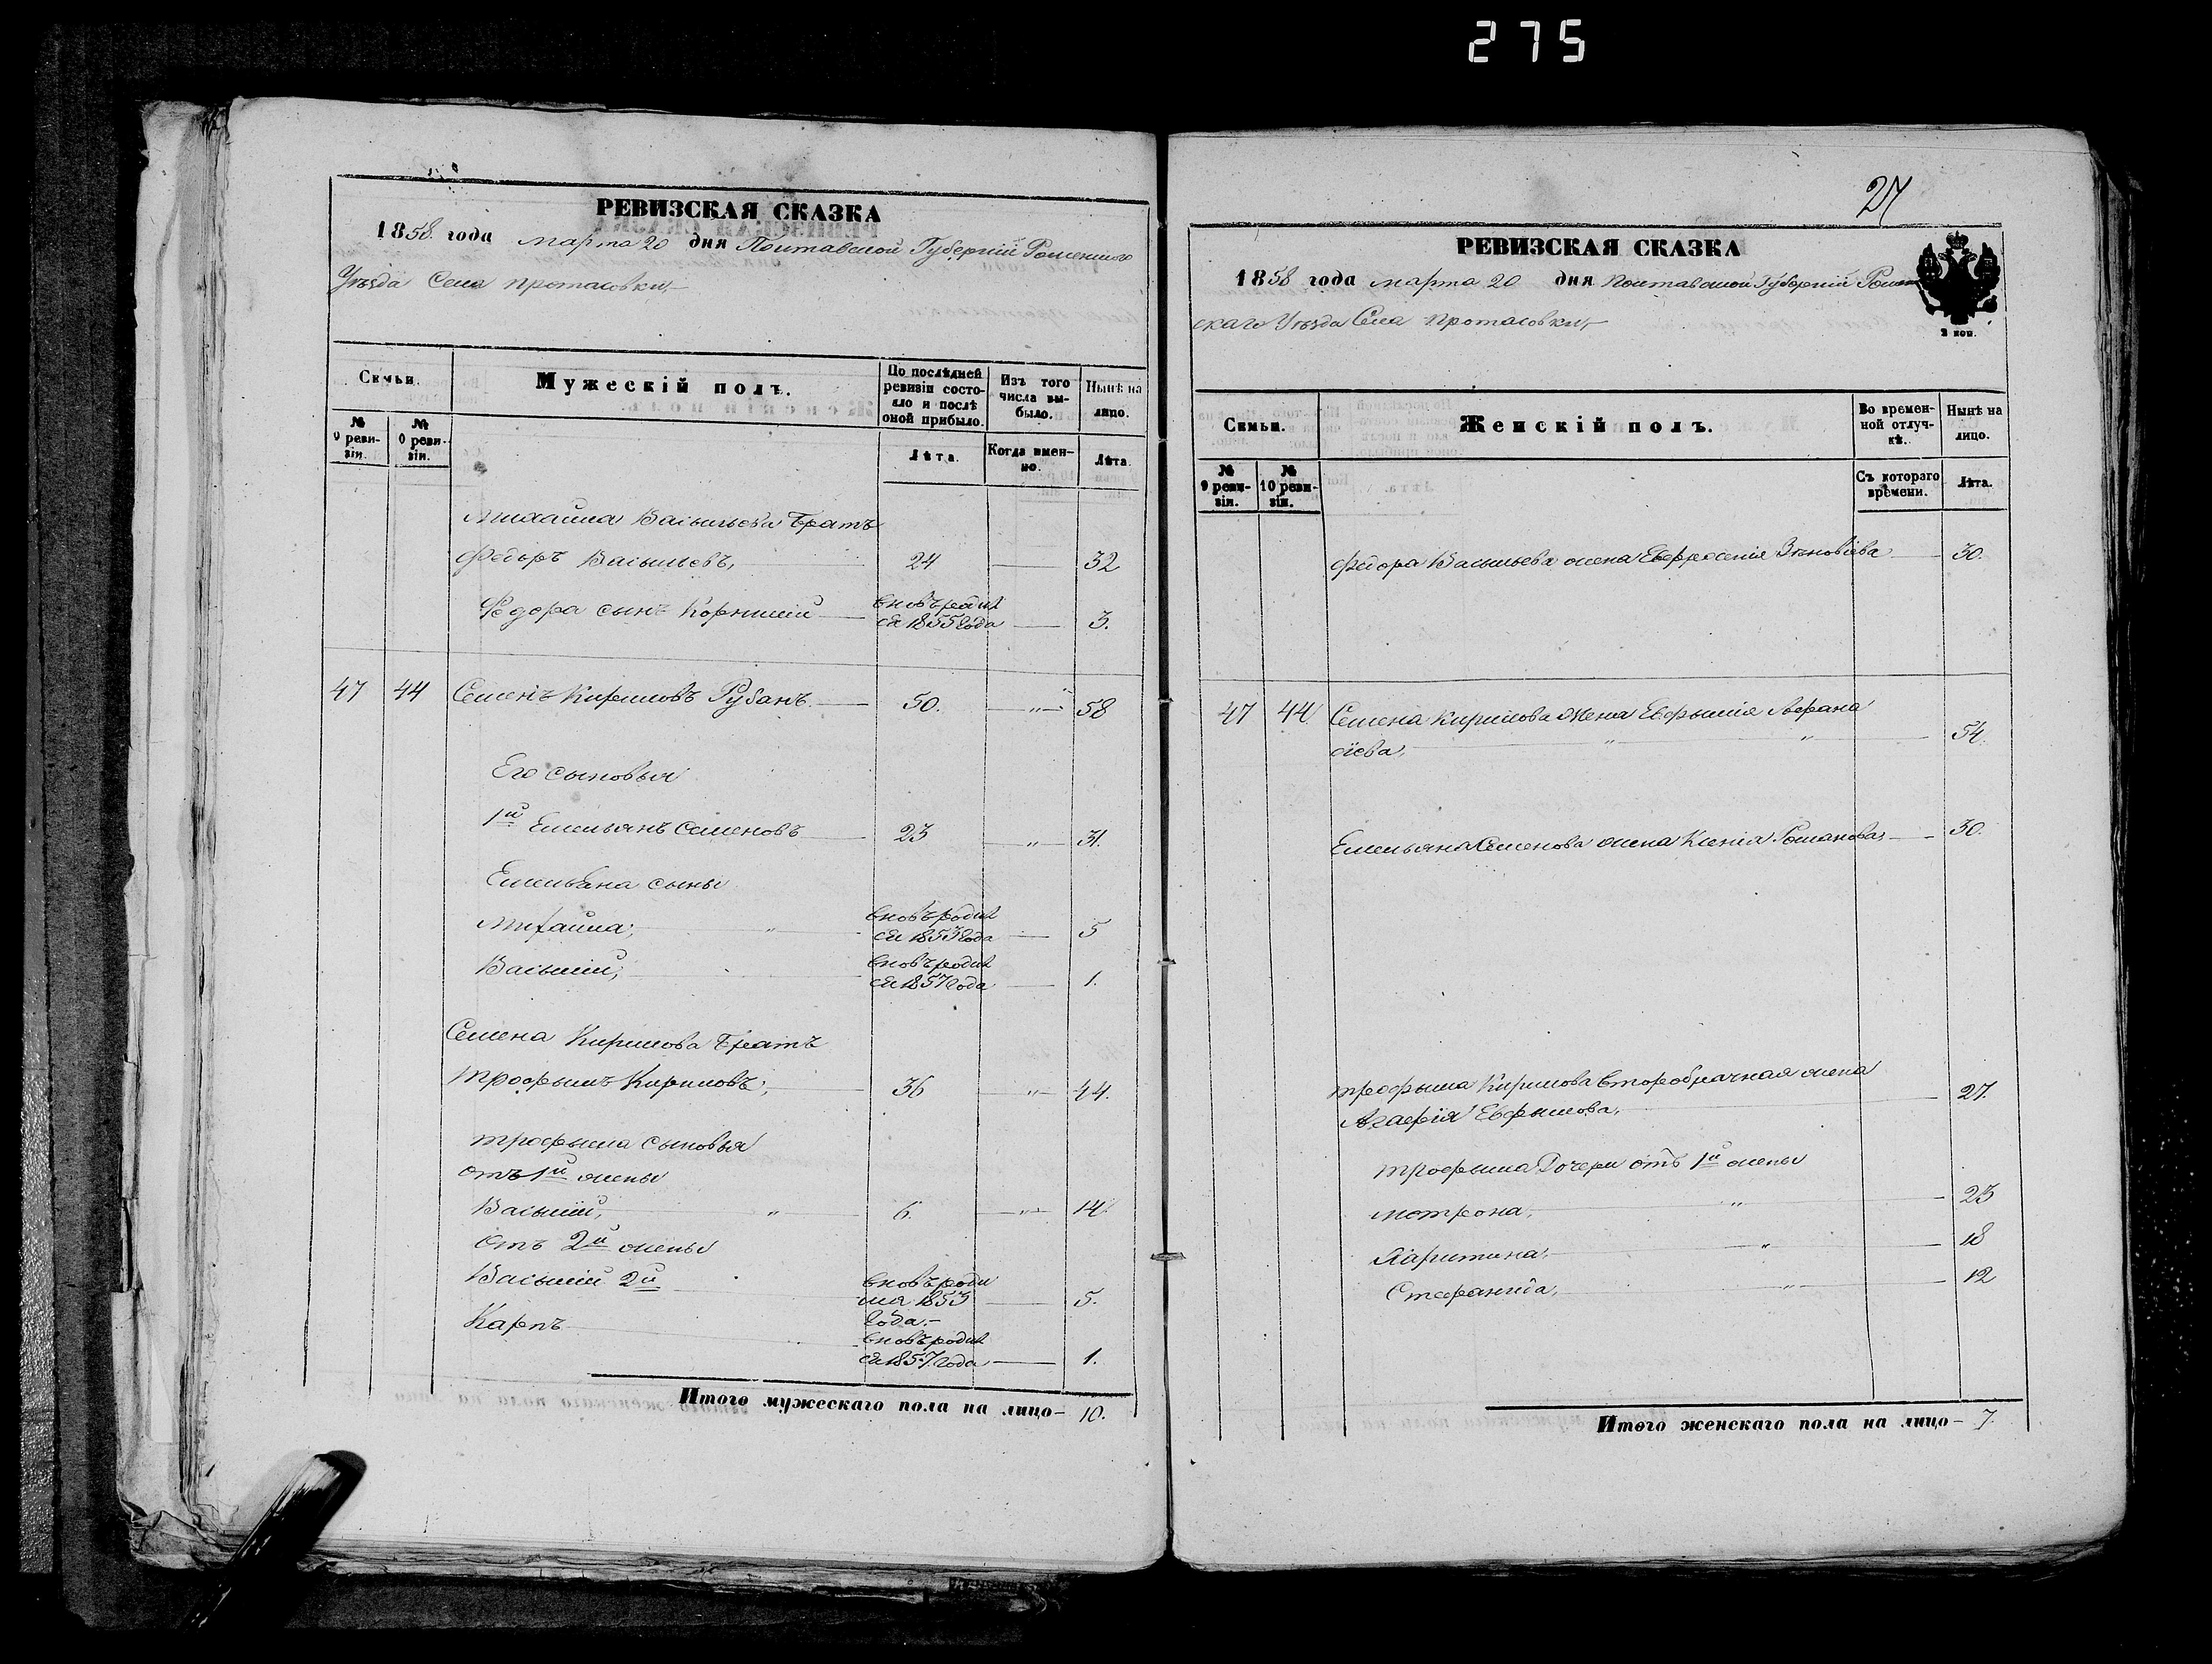 275
РЕВИЗСКАЯ СКАЗКА
1858 года марта 20 дня Полтавской Губернии Роменского
Уезда Села Протасовки,
Семьи.
Мужескій полъ.
По послѣдней ревизіи состояло и послѣ оной прибыло.
Изъ того числа выбыло.
Нынѣ на лицо.
№ 9 ревизіи.
№ 0 ревизіи.
Лѣта.
Когда именно.
Лѣта.
Михаила Васильева Братъ
Федоръ Васильевъ, 24 32
Федора сынъ Корнилій вновь родил
ся 1855 года 3.
47 44 Семенъ Кириловъ Рубанъ 50. " 58
Его сыновья
1й Емельянъ Семеновъ 23 " 31.
Емельяна сыны
Михаила, " вновь родил
ся 1853 года 5
Василій, вновь родил
ся 1857 года 1.
Семена Кирилова Братъ
Трофимъ Кириловъ, 36 " 44.
Трофима сыновья
отъ 1й жены
Василій, " 6. " 14.
отъ 2й жены
Василій 2й вновь роди
лся 1853 5.
года.
Карпъ вновь родил
ся 1857 года 1.
Итого мужескаго пола на лицо— 10.
27
РЕВИЗСКАЯ СКАЗКА
1858 года марта 20 дня Полтавской Губерній Ромен
скаго Уѣзда Села Протасовки,
2 коп.
Семьи.
Женскій полъ.
Во временной отлучкѣ.
Нынѣ на лицо.
№ 9 ревизіи.
№ 10 ревизіи.
Съ котораго времени.
Лѣта.
Федора Васильева жена Евфросенія Зѣновіева 30.
47 44 Семена Кирилова Жена Евфимія Афана
сіева, " " 54.
Емельяна Семенова жена Ксенія Романова, 30.
Трофима Кирилова второбрачная жена
Агафія Евфимова, 27.
Трофима Дочери отъ 1й жены
Мотрона, " 23
Харитина, " 18
Стефанида, " 12
Итого женскаго пола на лицо— 7.